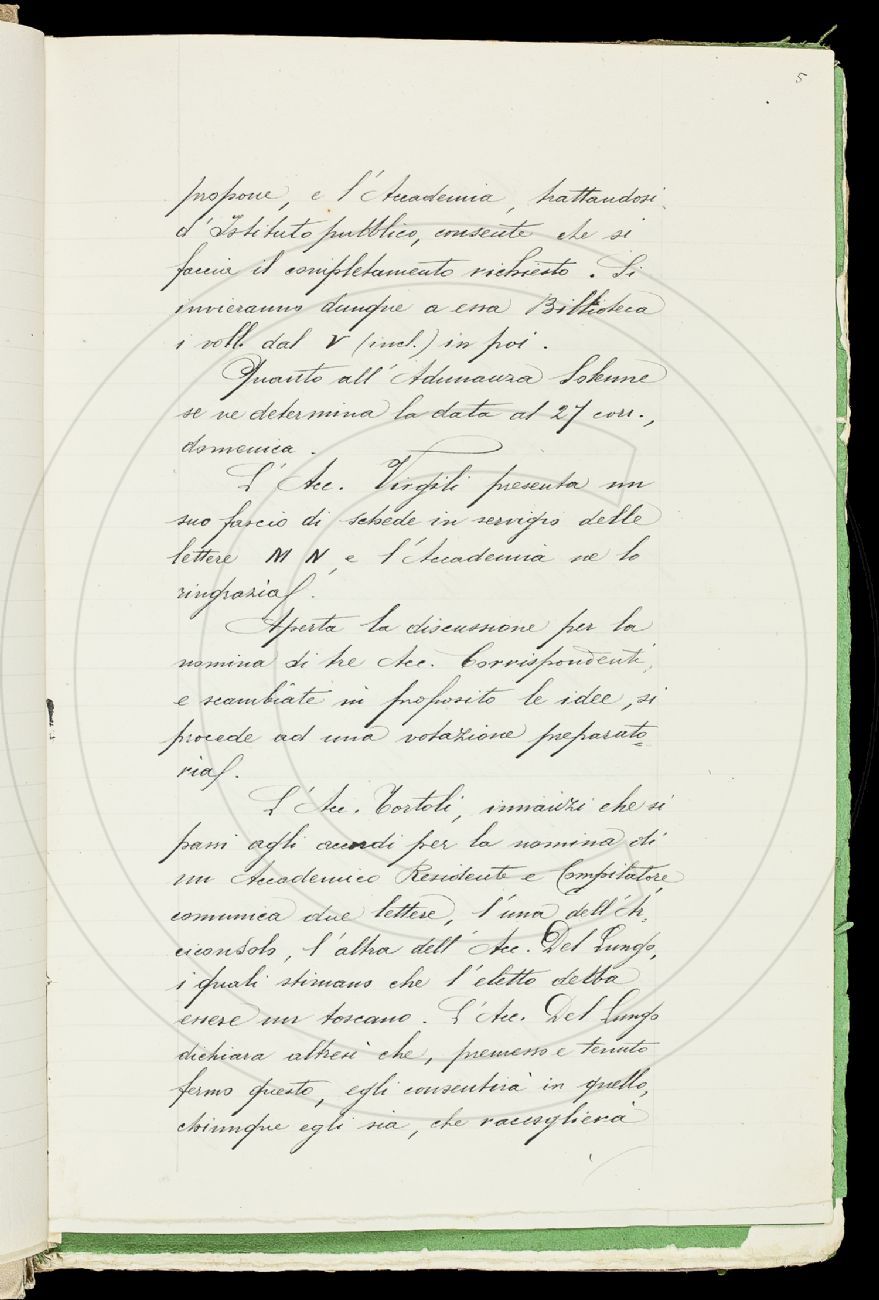 5
propone, e l'Accademia, trattandosi
d'Istituto pubblico, consente che si
faccia il completamento richiesto. Si
invieranno dunque a essa Biblioteca
i voll. dal V (incl.) in poi.
Quanto all'Adunanza Solenne
se ne determina la data al 27 corr.,
domenica.
L'Acc. Virgili presenta un
suo fascio di schede in servigio delle
lettere M N, e l'Accademia ne lo
ringrazia.
Aperta la discussione per la
nomina di tre Acc. Corrispondenti,
e scambiate in proposito le idee, si
procede ad una votazione preparato=
ria.
L'Acc. Tortoli, innanzi che si
passi agli accordi per la nomina di
un Accademico Residente e Compilatore,
comunica due lettere, l'una dell'Ar,
ciconsolo, l'altra dell'Acc. Del Lungo,
i quali stimano che l'eletto debba
essere un toscano. L'Acc. Del Lungo
dichiara altresì che, premesso e tenuto
fermo questo, egli consentirà in quello,
chiunque egli sia, che raccoglierà